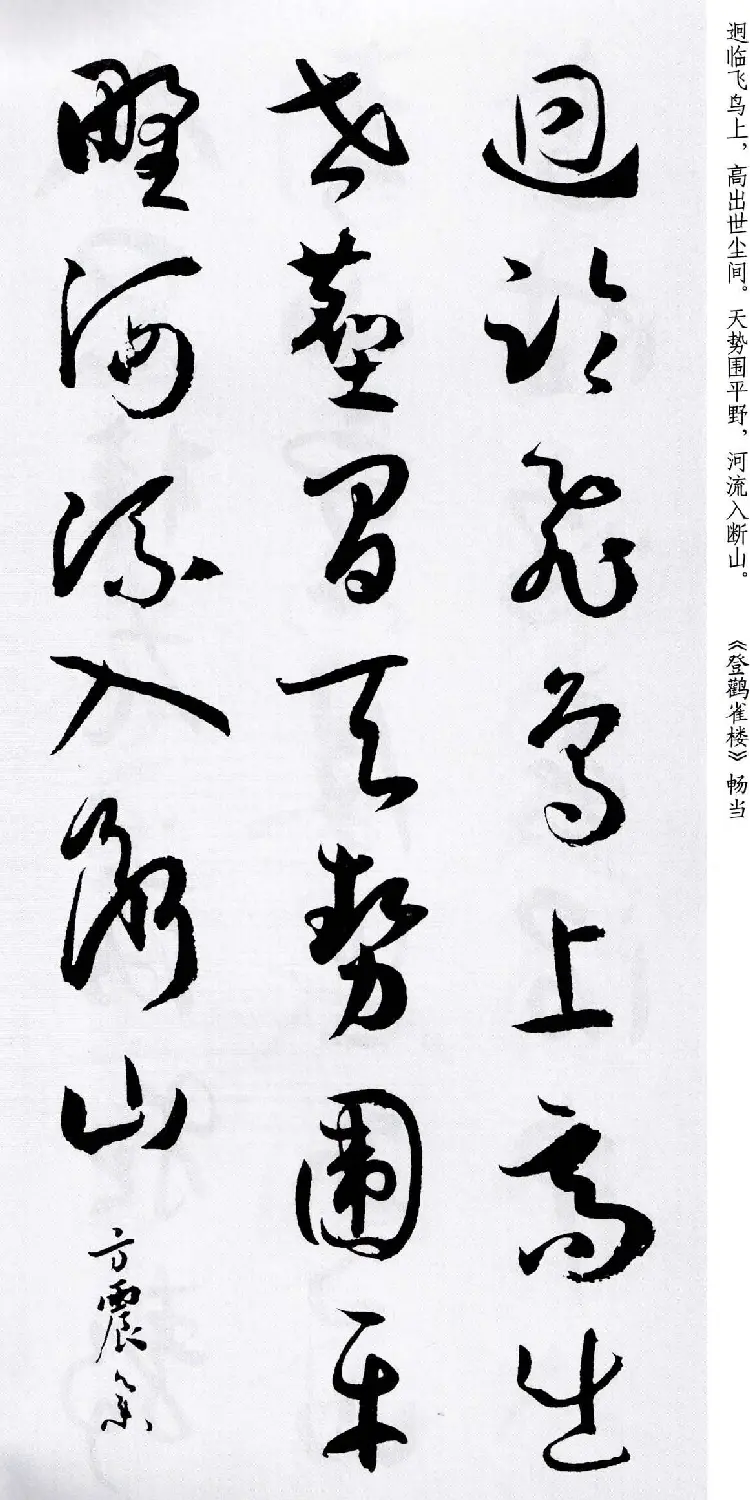 迥临飞鸟上，高出世尘间。天势围平野，河流入断山。 《登鹳雀楼》畅当
迥臨飛鳥上高出
世塵間天勢圍平
野河流入斷山
方震